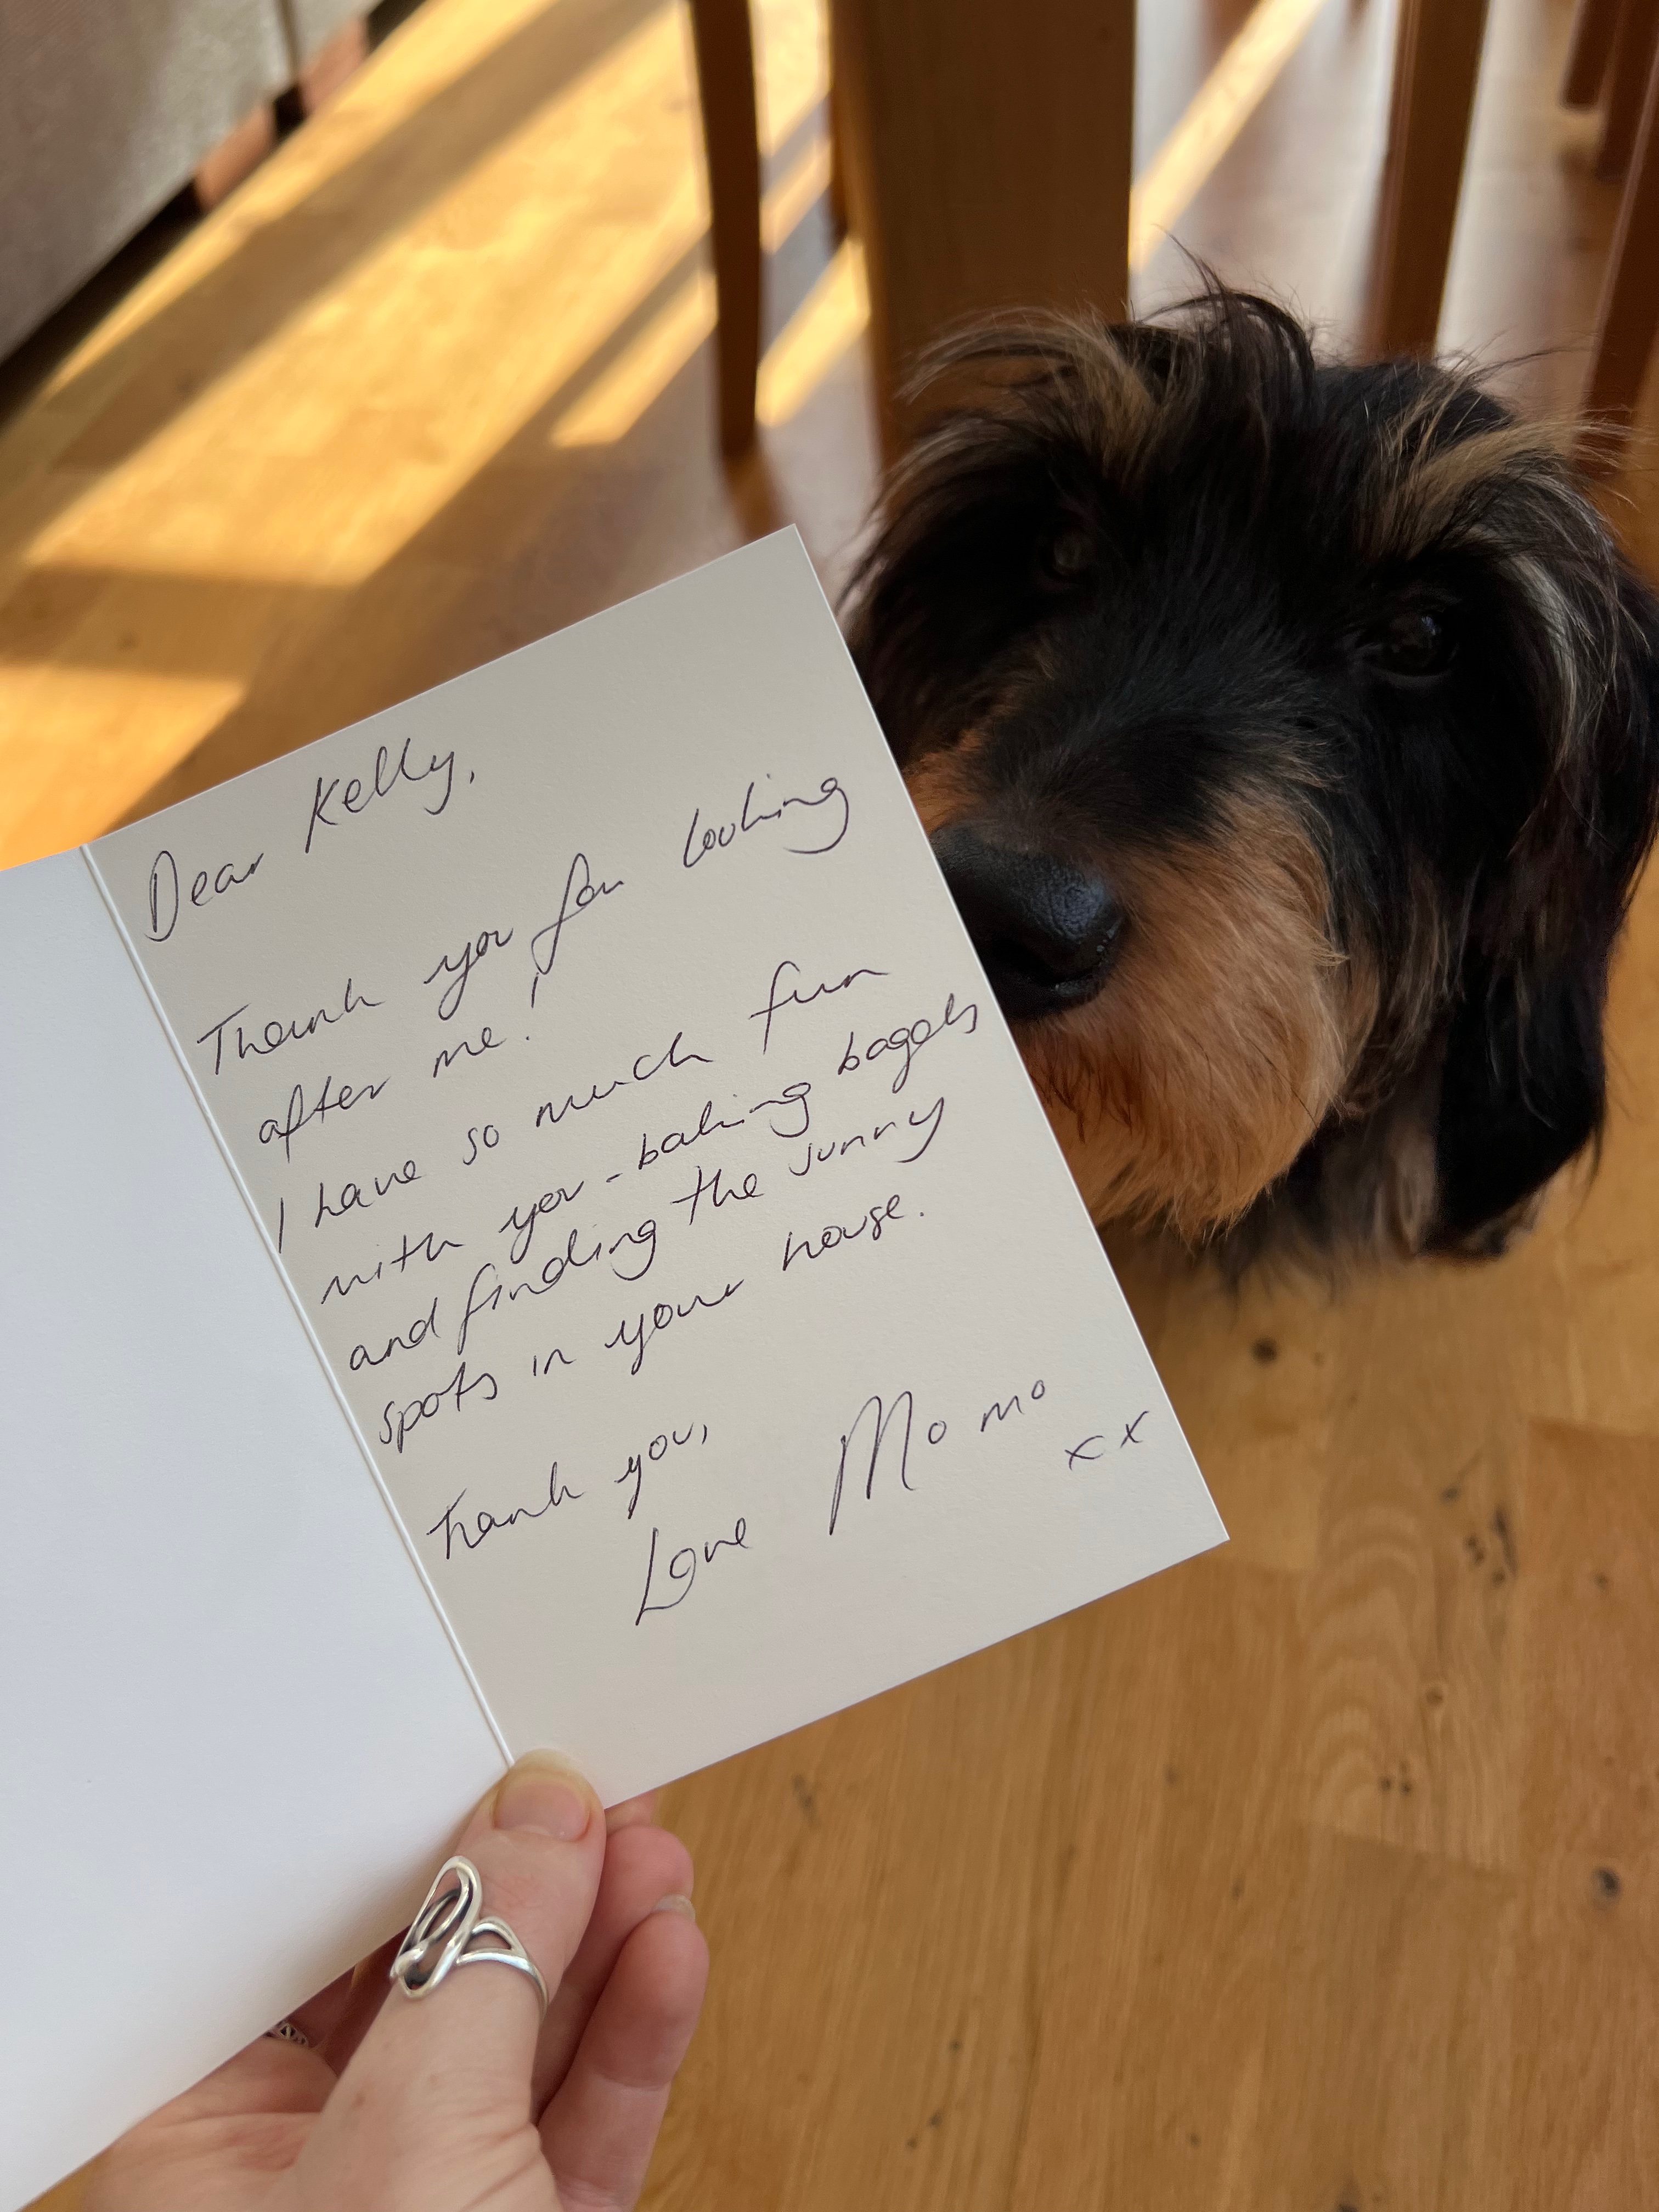 Dear Kelly,
Thank you for looking
after me!
I have so much fun
with you - baking bagels
and finding the sunny
spots in your house.
Thank you,
Love Momo
xx